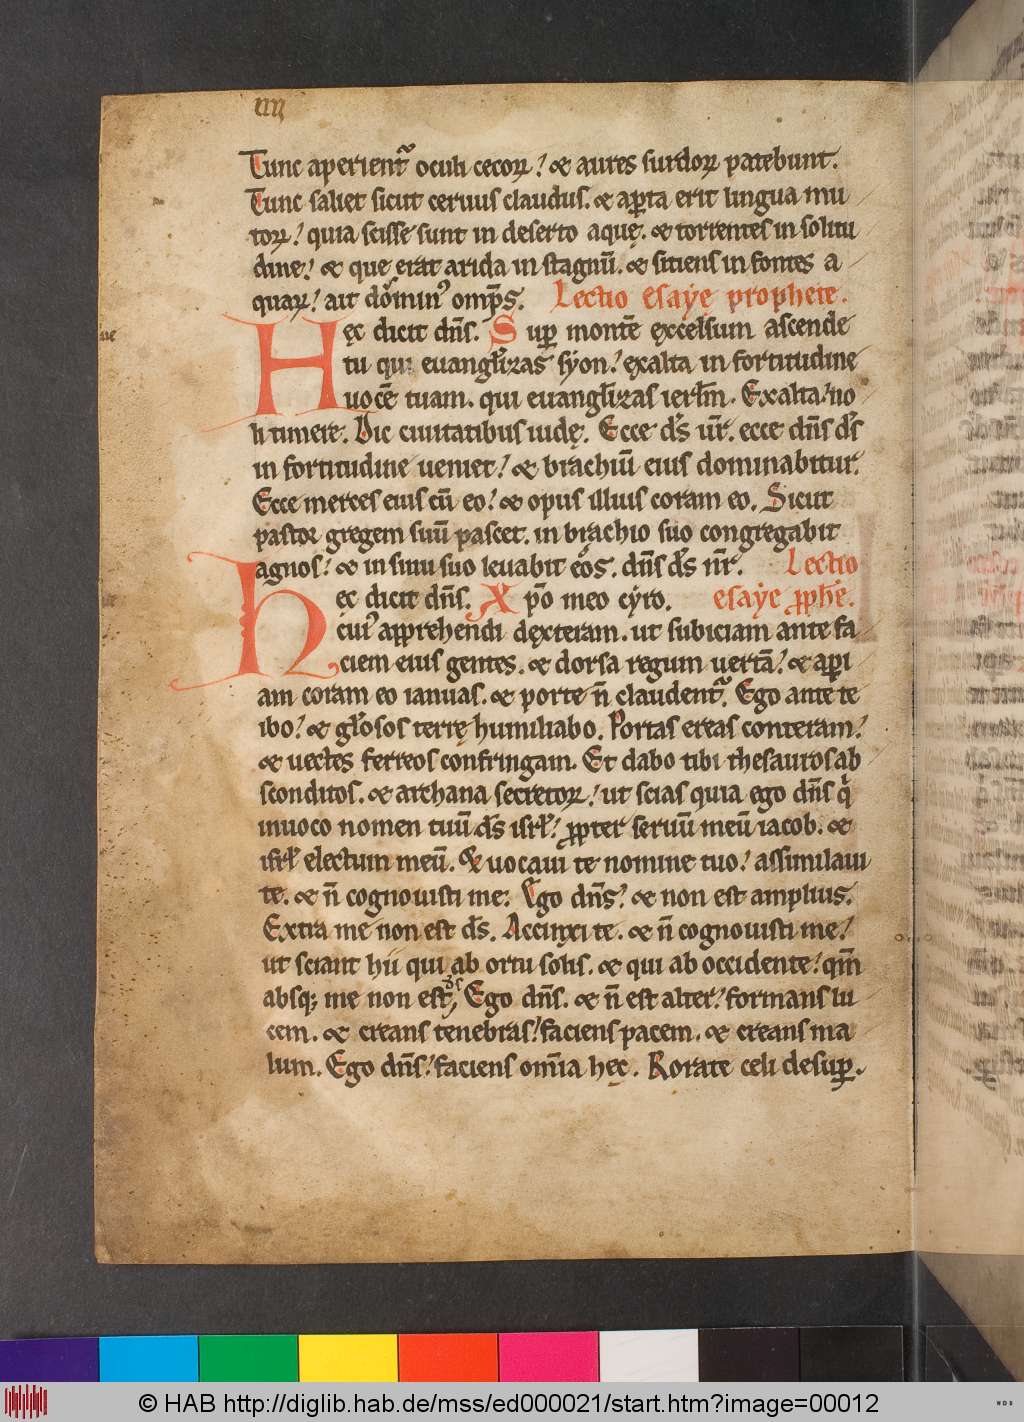 iiij
Tunc aperientᷓ oculi cecoꝝ! & aures surdoꝝ patebunt.
Tunc saliet sicut ceruus claudus. & aꝑta erit lingua mu
toꝝ! quia scisse sunt in deserto aquę. & torrentes in solitu
dine! & que erat arida in stagnū. & sitiens in fontes a
quaꝝ! ait dominꝰ omp̄s. Lectio esaẏe prophete.
Hęc dicit dn̄s. Suꝑ montē excelsum ascende
tu qui euangl̄izas sẏon! exalta in fortitudine
uocē tuam. qui euangl̄izas ierl̄m. Exalta! no
li timere. Dic ciuitatibus iudę. Ecce ds̄ ur̄. ecce dn̄s ds̄
in fortitudine ueniet! & brachiū eius dominabitur.
Ecce merces eius cū eo! & opus illius coram eo. Sicut
pastor gregem suū pascet. in brachio suo congregabit
agnos! & in sinu suo leuabit eos. dn̄s ds̄ nr̄. Lectio
hęc dicit dn̄s. Xp̄o meo cẏro. esaẏe ꝓphē.
cuiꝰ apprehendi dexteram. ut subiciam ante fa
ciem eius gentes. & dorsa regum uertā! & aꝑi
am coram eo ianuas. & porte n̄ claudentᷓ. Ego ante te
ibo! & gl̄osos terrę humiliabo. Portas ereas conteram!
& uectes ferreos confringam. Et dabo tibi thesauros ab
sconditos. & archana secretoꝝ! ut scias quia ego dn̄s qͥ
inuoco nomen tuū ds̄ isrl̄! ꝓpter seruū meū iacob. &
isrl̄ electum meū. & uocaui te nomine tuo! assimilaui
te. & n̄ cognouisti me. Ego dn̄s! & non est amplius.
Extra me non est ds̄. Accinxi te. & n̄ cognouisti me!
ut sciant hii qui ab ortu solis. & qui ab occidente! qm̄
absq; me non est. Ego dn̄s. & n̄ est alter! formans lu
cem. & creans tenebras! faciens pacem. & creans ma
lum. Ego dn̄s! faciens om̄ia hec. Rorate celi desuꝑ.
© HAB http://diglib.hab.de/mss/ed000021/start.htm?image=00012